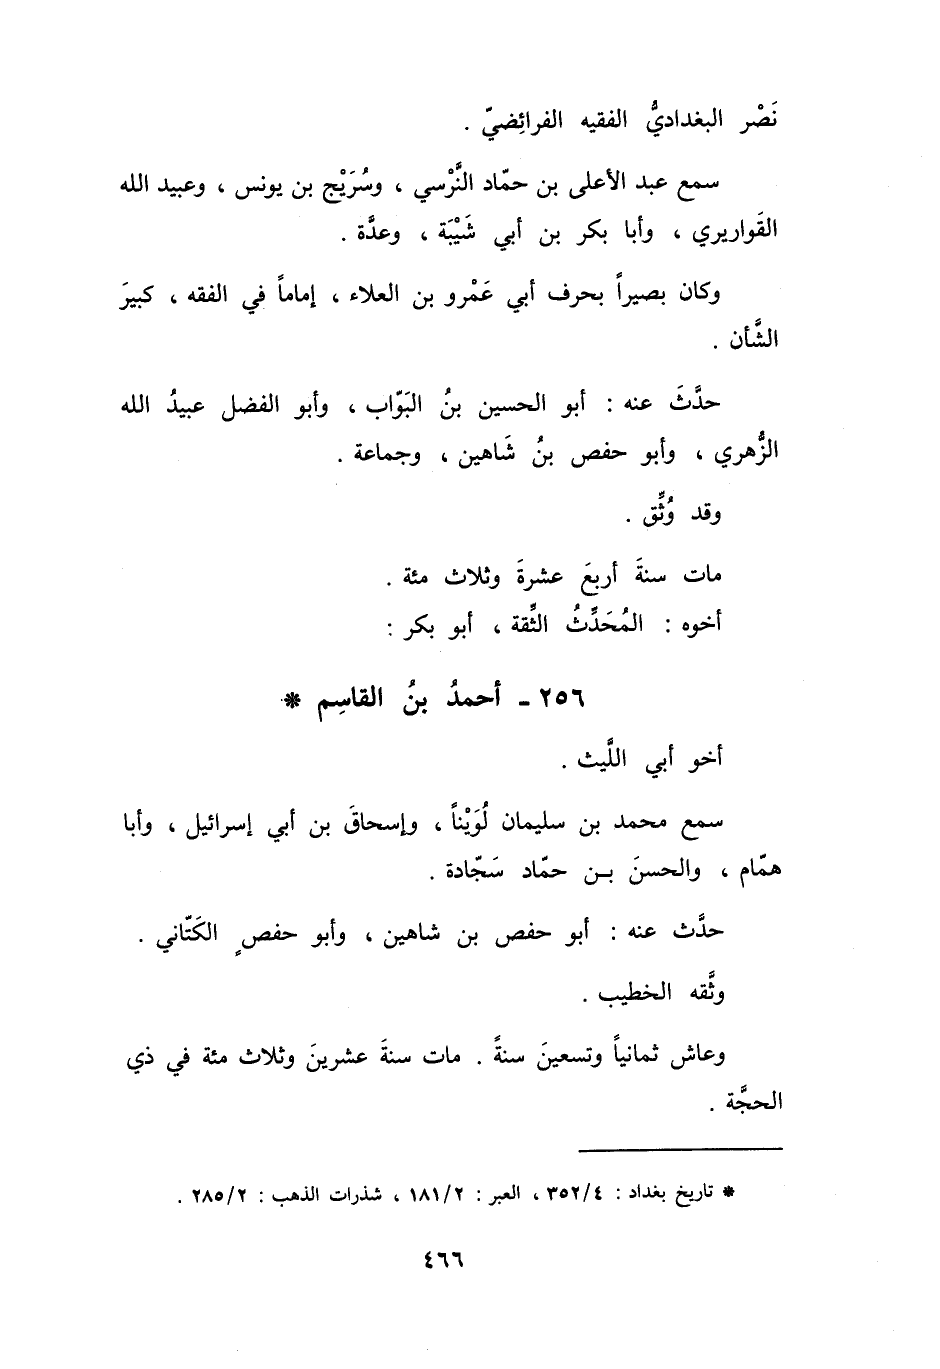 نَصْر البغداديُّ الفقيه الفرائِضيّ .
سمع عبد الأعلى بن حمّاد النَّرْسي ، وسُرَيْج بن يونس ، وعبيد الله
القَواريري ، وأبا بكر بن أبي شَيْبَة ، وعدَّة .
وكان بصيراً بحرف أبي عَمْرو بن العلاء ، إماماً في الفقه ، كبيرَ
الشَّأن .
حدَّثَ عنه : أبو الحسين بنُ البَوّاب ، وأبو الفضل عبيدُ الله
الزُّهري ، وأبو حفص بنُ شَاهين ، وجماعة .
وقد وُثِّق .
مات سنةَ أربعَ عشرةَ وثلاث مئة .
أخوه : المُحَدِّثُ الثِّقة ، أبو بكر :
٢٥٦ ـ أحمدُ بنُ القاسِم *
أخو أبي اللَّيث .
سمع محمد بن سليمان لُوَيْناً ، وإسحاقَ بن أبي إسرائيل ، وأبا
همّام ، والحسنَ بـن حمّاد سَجّادة .
حدَّث عنه : أبو حفص بن شاهين ، وأبو حفصٍ الكَتّاني .
وثَّقه الخطيب .
وعاش ثمانياً وتسعينَ سنةً . مات سنةَ عشرينَ وثلاث مئة في ذي
الحجَّة .
* تاريخ بغداد : ٣٥٢/٤ ، العبر : ١٨١/٢ ، شذرات الذهب : ٢٨٥/٢ .
٤٦٦